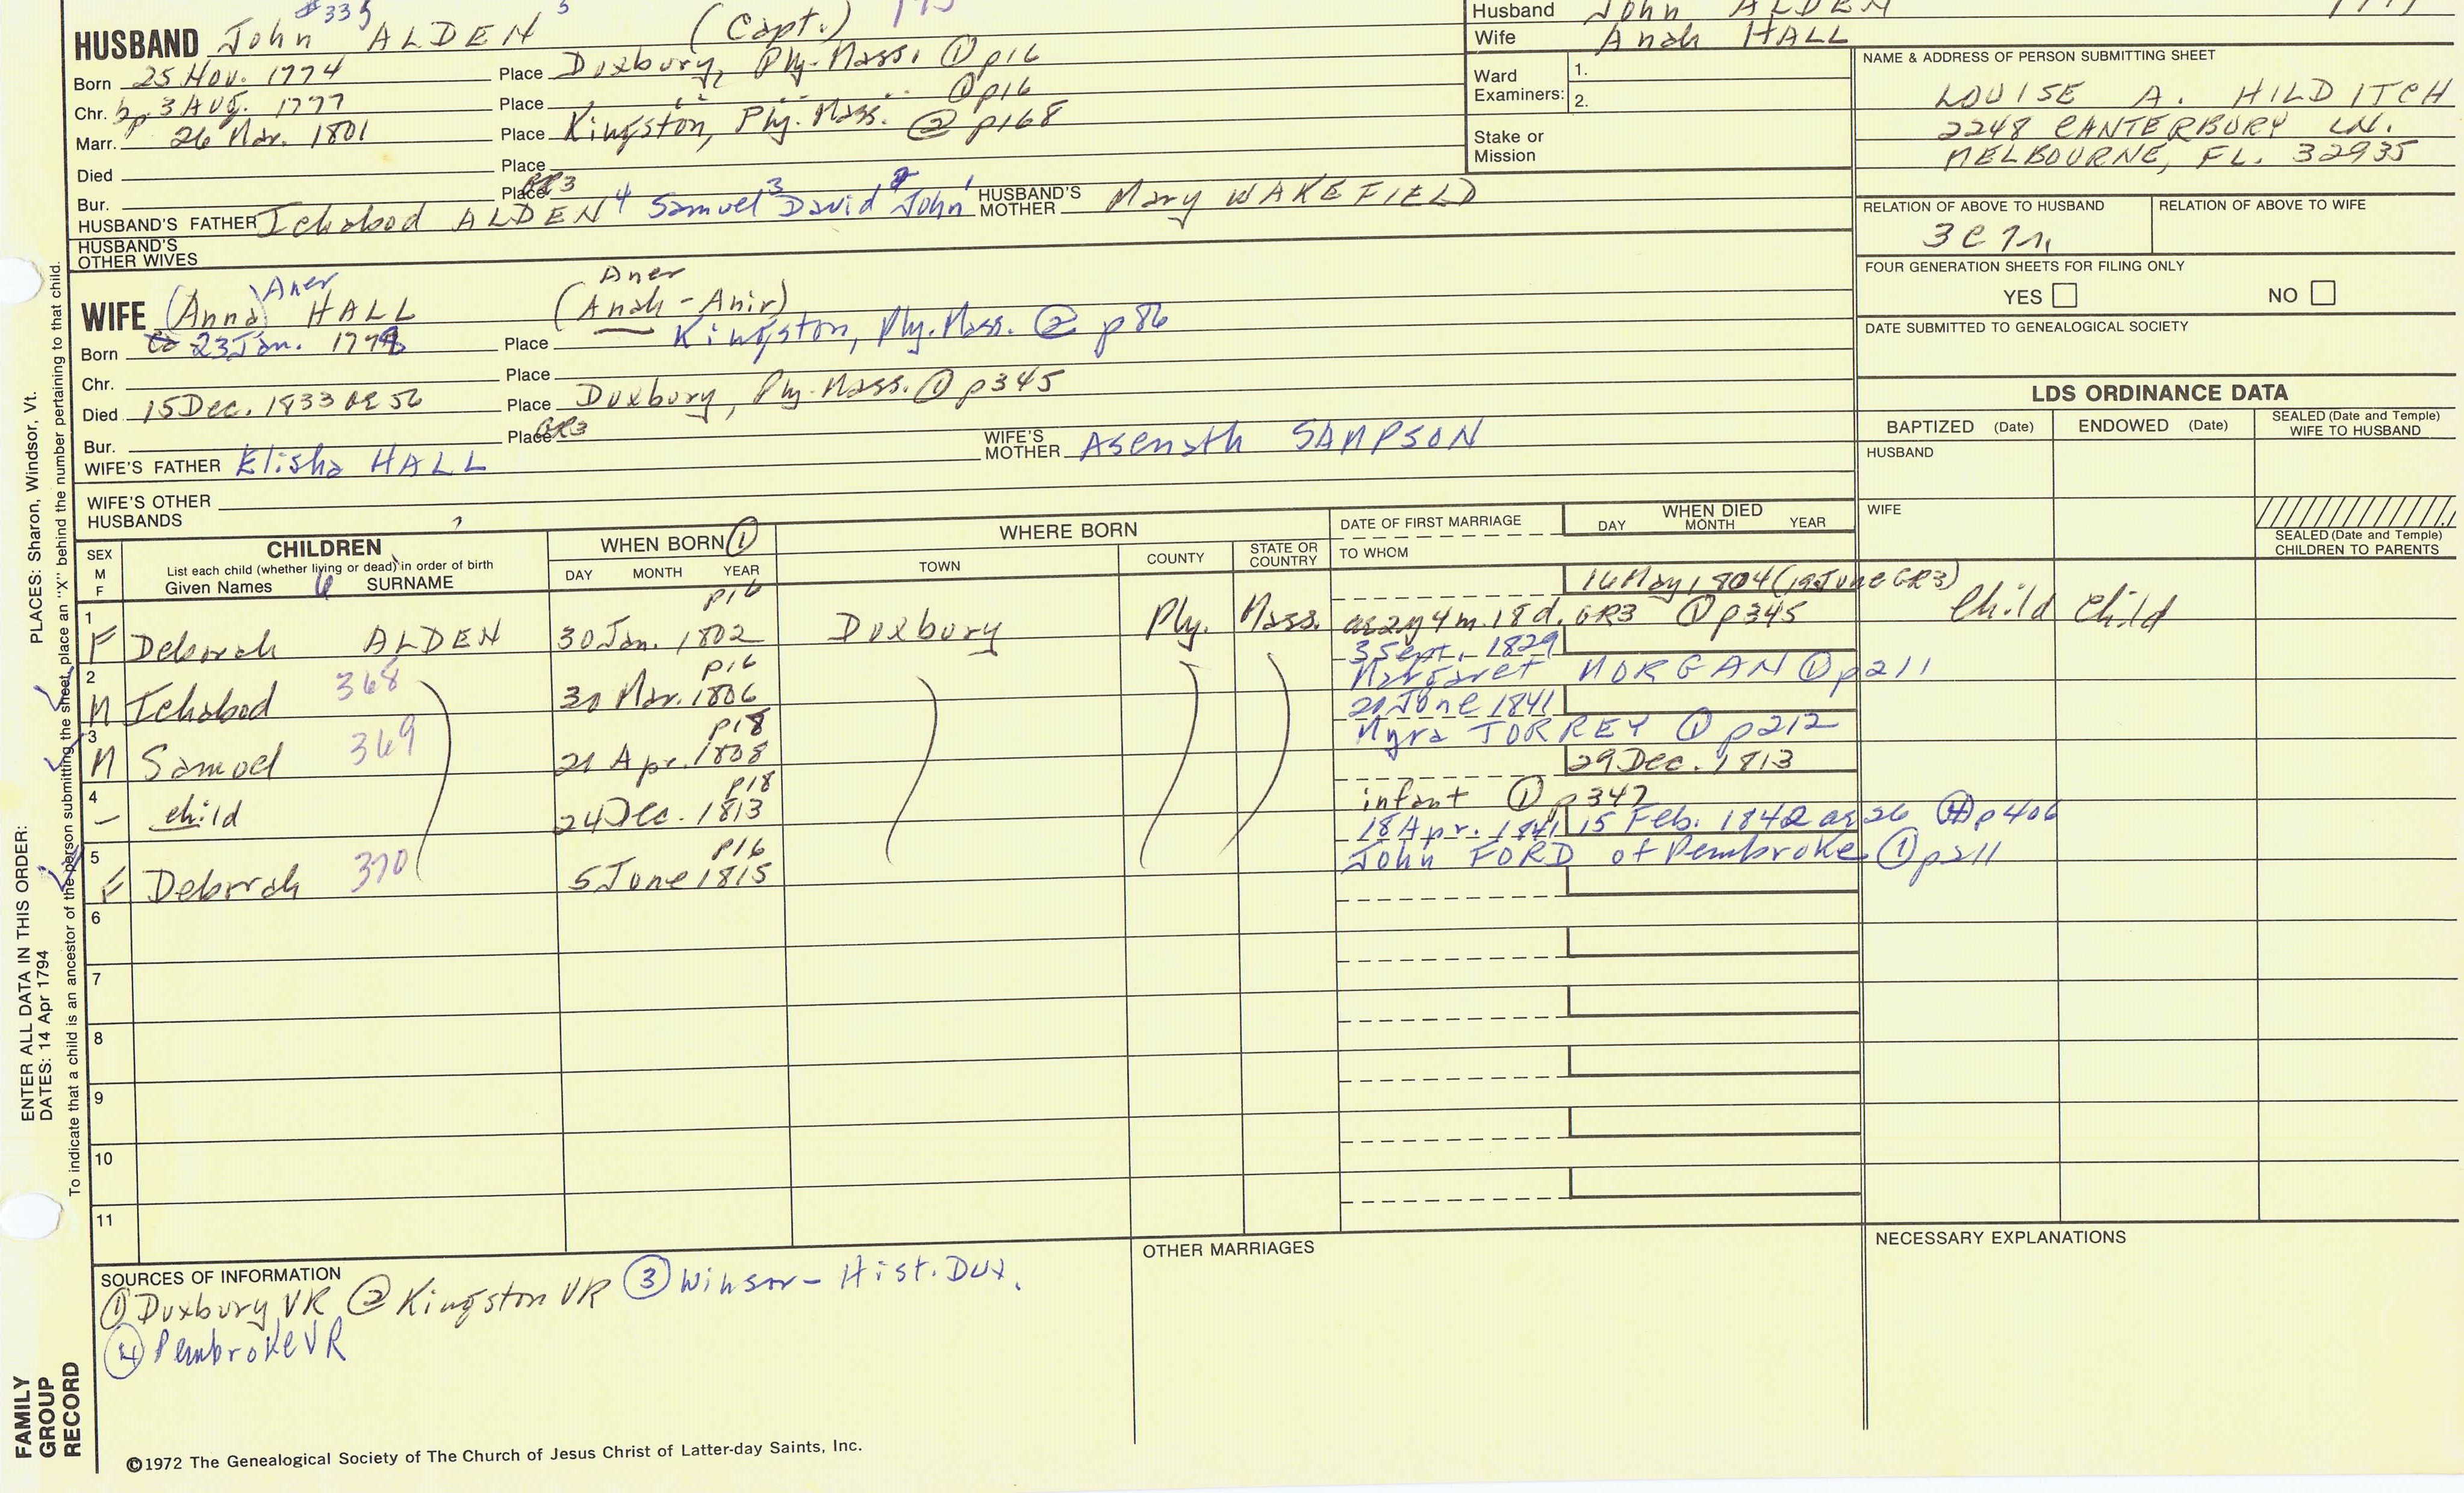 #335 5
HUSBAND John ALDEN (Capt.)
Husband John ALDEN
Wife Anah HALL
Born 25 Nov. 1774 Place Duxbury, Ply. Mass. ① p16
Chr. bp. 3 Aug. 1777 Place " " " ① p16
Marr. 26 Mar. 1801 Place Kingston, Ply. Mass. ② p168
Died Place
Bur. Place GR3
HUSBAND'S FATHER Ichabod ALDEN 4 Samuel 3 David 2 John 1 HUSBAND'S MOTHER Mary WAKEFIELD
HUSBAND'S OTHER WIVES
Ward Examiners: 1.
2.
Stake or Mission
NAME & ADDRESS OF PERSON SUBMITTING SHEET
LOUISE A. HILDITCH
2248 CANTERBURY LN.
MELBOURNE, FL. 32935
RELATION OF ABOVE TO HUSBAND RELATION OF ABOVE TO WIFE
FOUR GENERATION SHEETS FOR FILING ONLY
YES NO
DATE SUBMITTED TO GENEALOGICAL SOCIETY
Aner Aner
WIFE (Anna) HALL (Anah - Anir)
Born 23 Jan. Place Kingston, Ply. Mass. ② p86
Chr. Place
Died 15 Dec. 1833 ae 56 Place Duxbury, Ply. Mass. ① p345
Bur. Place GR3
WIFE'S FATHER Elisha HALL WIFE'S MOTHER Asenath SAMPSON
WIFE'S OTHER HUSBANDS
LDS ORDINANCE DATA
BAPTIZED (Date) ENDOWED (Date) SEALED (Date and Temple) WIFE TO HUSBAND
HUSBAND
WIFE
SEALED (Date and Temple) CHILDREN TO PARENTS
SEX M F
CHILDREN
List each child (whether living or dead) in order of birth
Given Names 6 SURNAME
WHEN BORN ①
DAY MONTH YEAR
WHERE BORN
TOWN COUNTY STATE OR COUNTRY
DATE OF FIRST MARRIAGE
TO WHOM
WHEN DIED
DAY MONTH YEAR
p16 16 May 1804 (19 June GR3)
1 F Deborah ALDEN 30 Jan. 1802 Duxbury Ply. Mass. ae 2y 4m. 18d. GR3 ① p345 Child Child
p16 3 Sept. 1829
2 M Ichabod 368 30 Mar. 1806 Margaret MORGAN ① p211
p18 20 June 1841
3 M Samuel 369 21 Apr. 1808 Myra TORREY ① p212
p18 29 Dec. 1813
4 – child 24 Dec. 1813 infant ① p347
p16 18 Apr. 1841 15 Feb. 1842 ae 26 ④ p406
5 F Deborah 370 5 June 1815 John FORD of Pembroke ① p211
6
7
8
9
10
11
SOURCES OF INFORMATION
① Duxbury VR ② Kingston VR ③ Winsor - Hist. Dux.
④ Pembroke VR
OTHER MARRIAGES
NECESSARY EXPLANATIONS
©1972 The Genealogical Society of The Church of Jesus Christ of Latter-day Saints, Inc.
ENTER ALL DATA IN THIS ORDER:
DATES: 14 Apr 1794 PLACES: Sharon, Windsor, Vt.
To indicate that a child is an ancestor of the person submitting the sheet, place an "X" behind the number pertaining to that child.
FAMILY GROUP RECORD